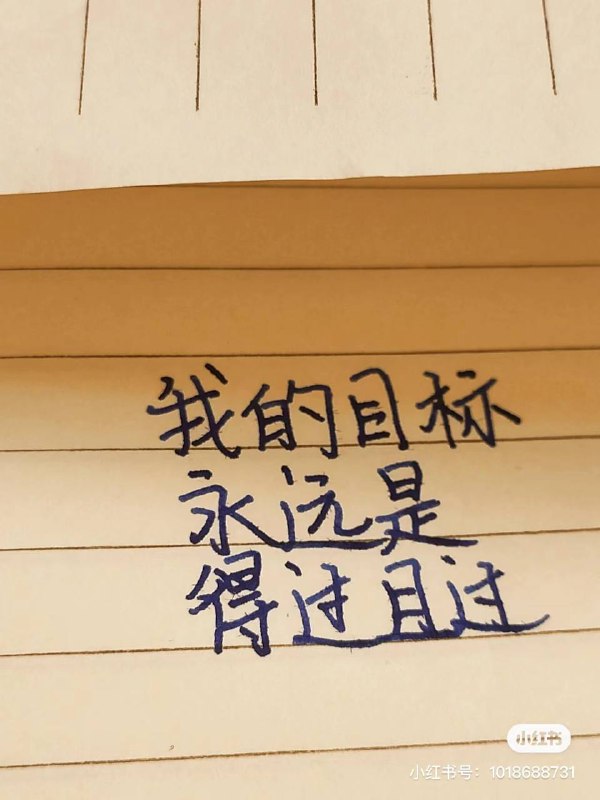 我的目标
永远是
得过且过
小红书
小红书号：1018688731